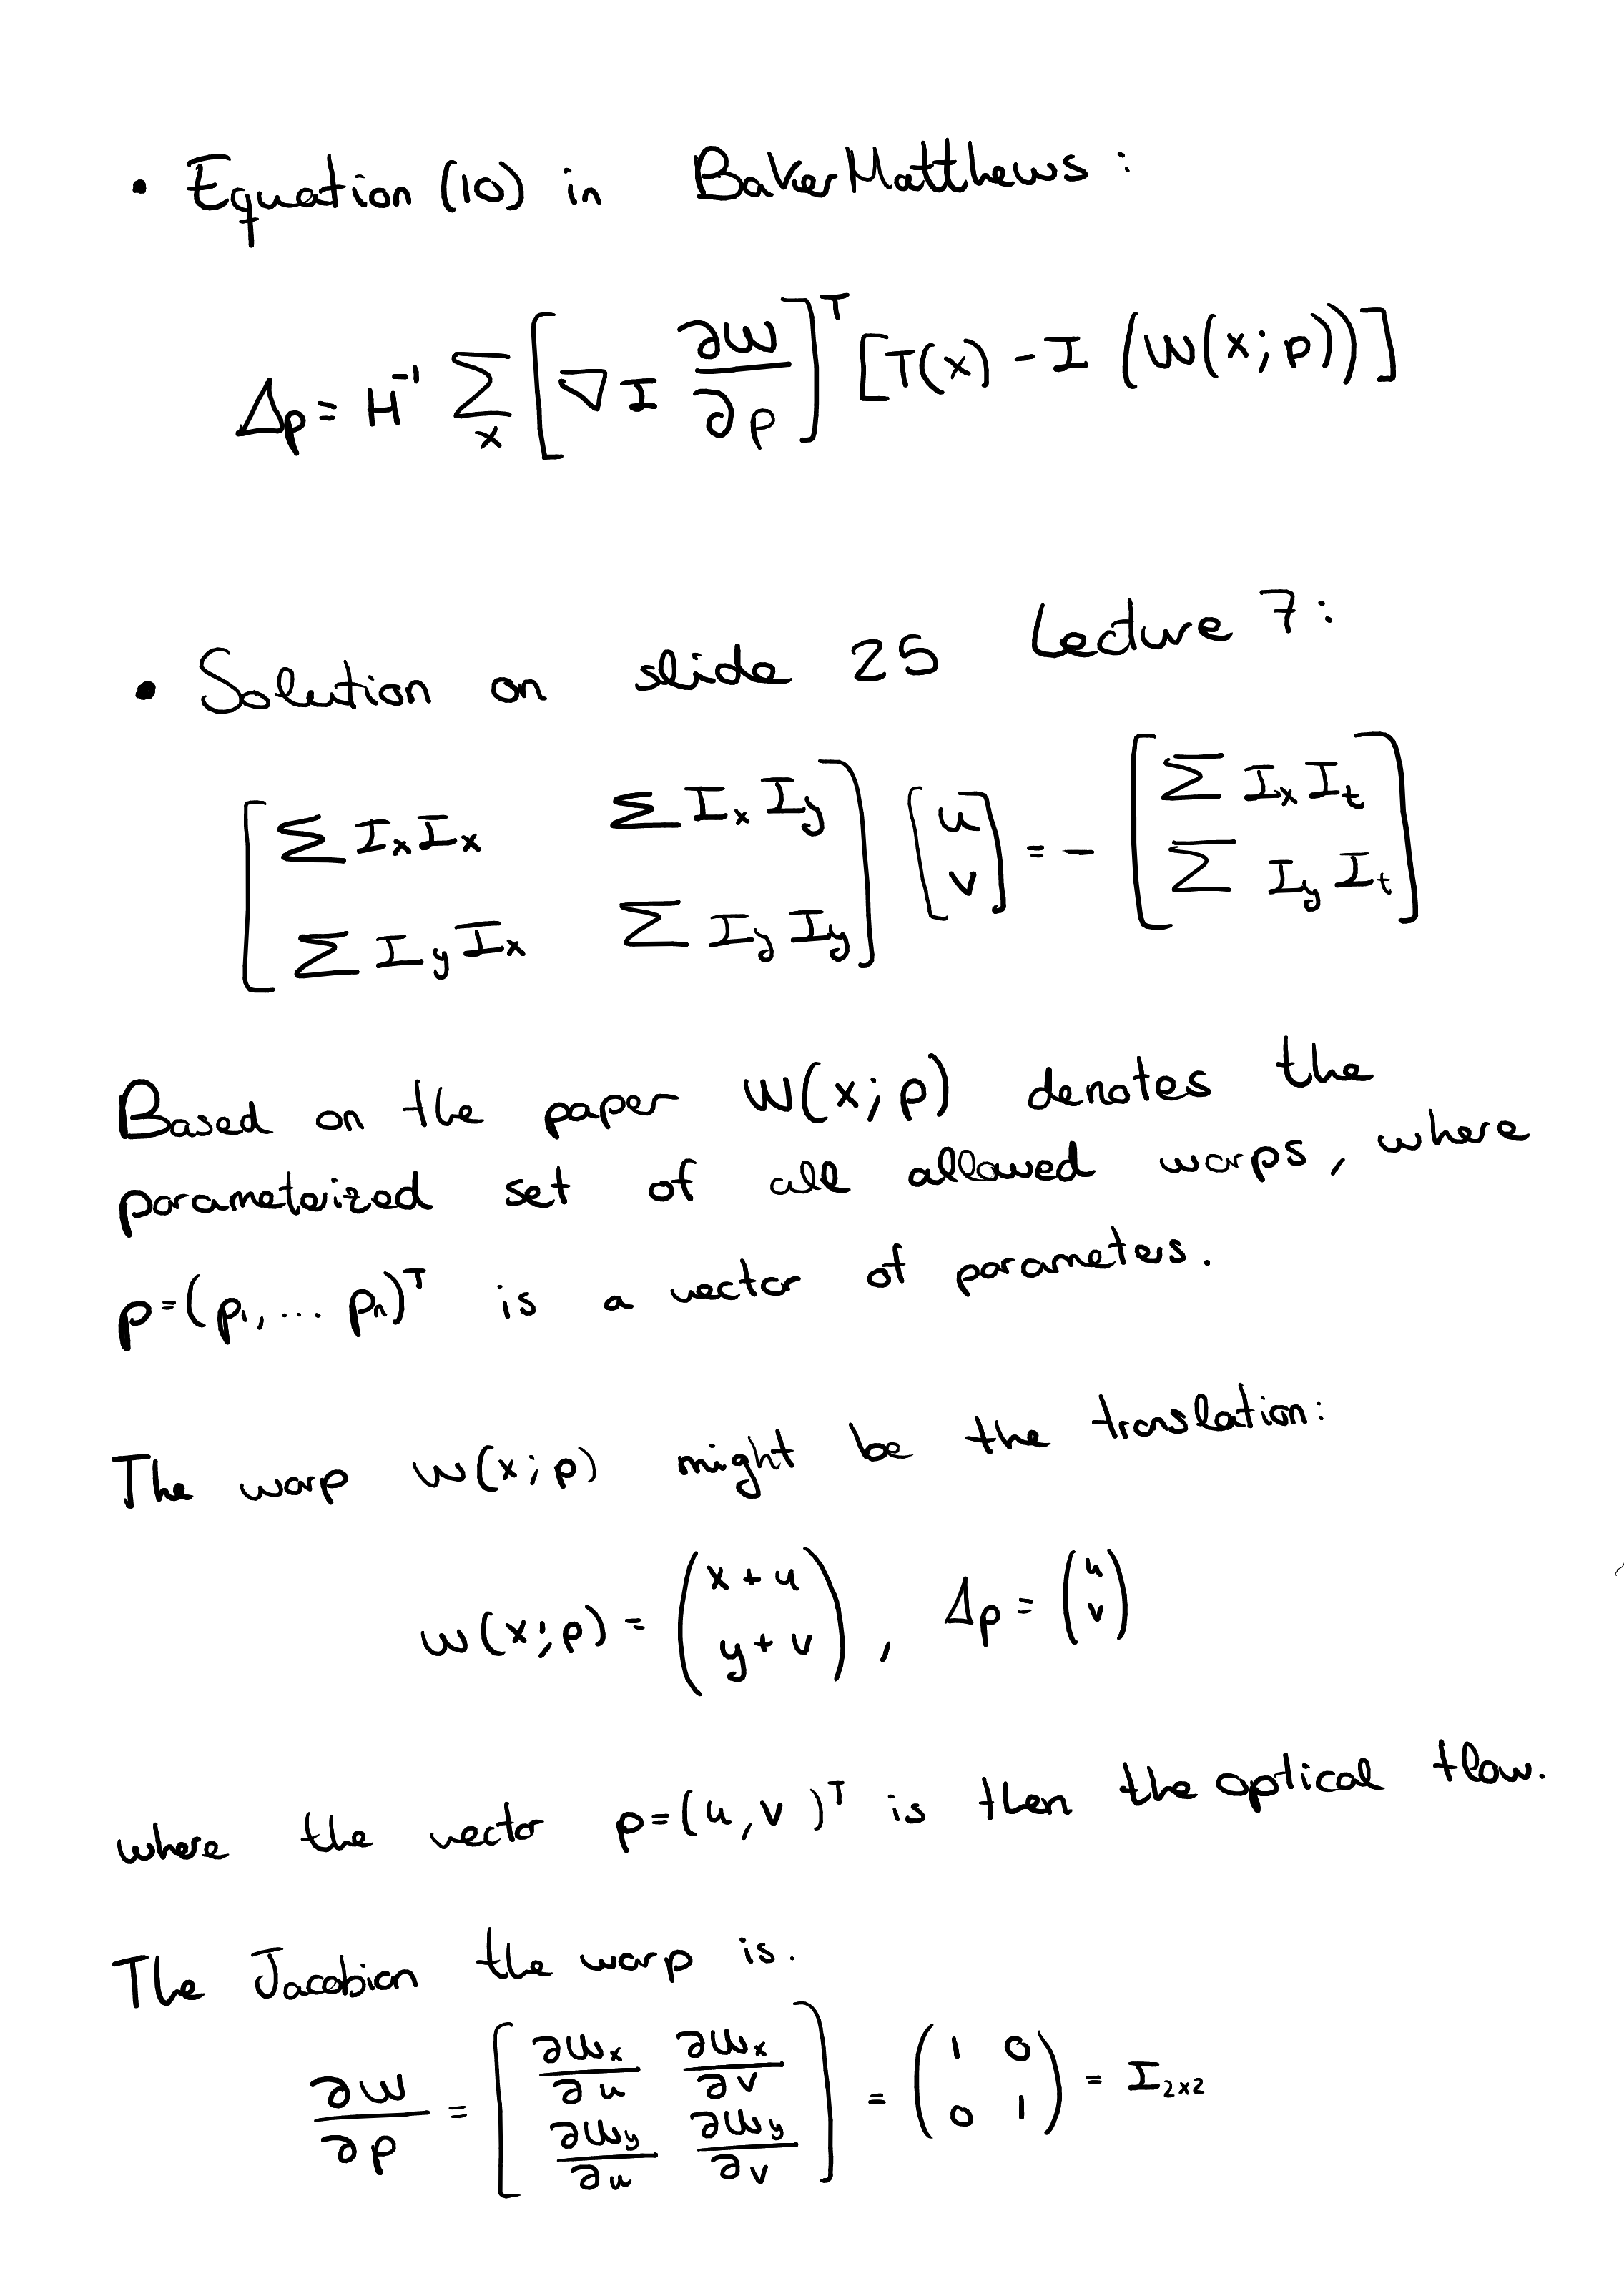 • Equation (10) in BakerMatthews:
Δp = H⁻¹ ∑ₓ [∇I ∂W/∂p]ᵀ [T(x) - I (W(x; p))]
• Solution on slide 25 Lecture 7:
[∑ IₓIₓ ∑ IₓI_y; ∑ I_yIₓ ∑ I_yI_y] [u; v] = - [∑ IₓI_t; ∑ I_yI_t]
Based on the paper W(x; p) denotes the
parameterized set of all allowed warps, where
p=(p₁, ... pₙ)ᵀ is a vector of parameters.
The warp W(x; p) might be the translation:
W(x; p) = (x + u; y + v), Δp = (u; v)
where the vector p=(u, v)ᵀ is then the optical flow.
The Jacobian the warp is.
∂W/∂p = [∂Wₓ/∂u ∂Wₓ/∂v; ∂W_y/∂u ∂W_y/∂v] = (1 0; 0 1) = I₂ₓ₂